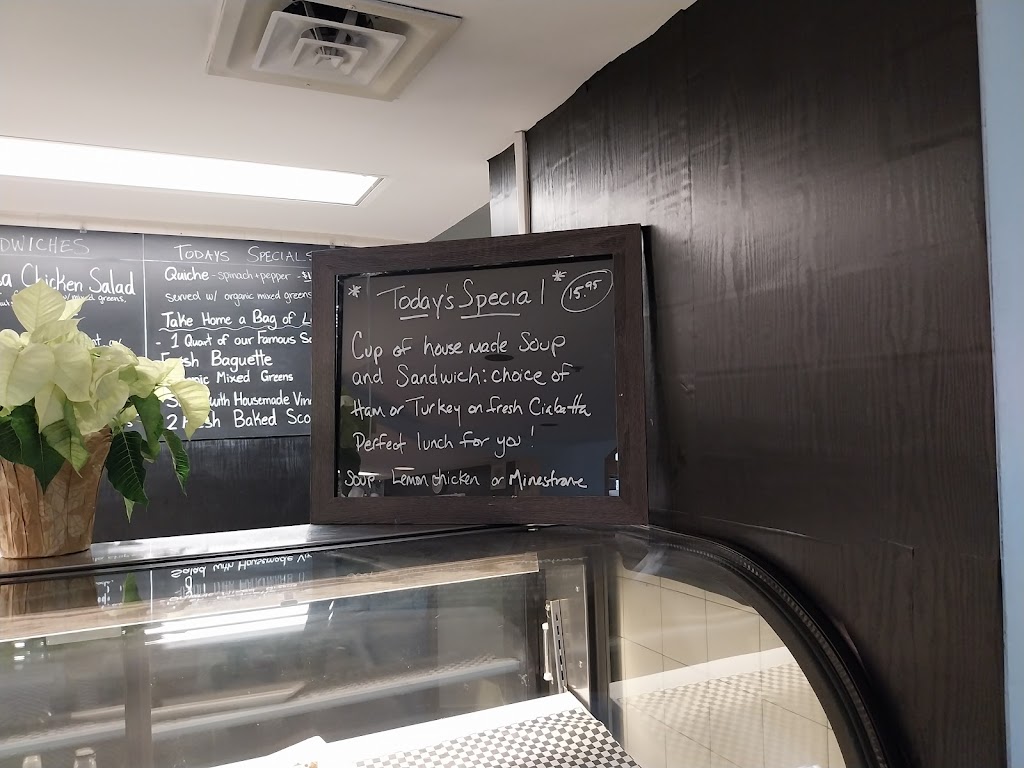 DWICHES
a Chicken Salad
w/mixed greens,
TODAYS SPECIALS
Quiche - spinach + pepper - $
Served w/ organic mixed greens
Take Home a Bag of L
- 1 Quart of our Famous So
Fresh Baguette
nic Mixed Greens
with Housemade Vin
2 Fresh Baked Sco
* Today's Special * 15.95
Cup of house made Soup
and Sandwich: choice of
Ham or Turkey on fresh Ciabatta
Perfect lunch for you!
Soup. Lemon chicken or Minestrone
Salad with Housemade Vin